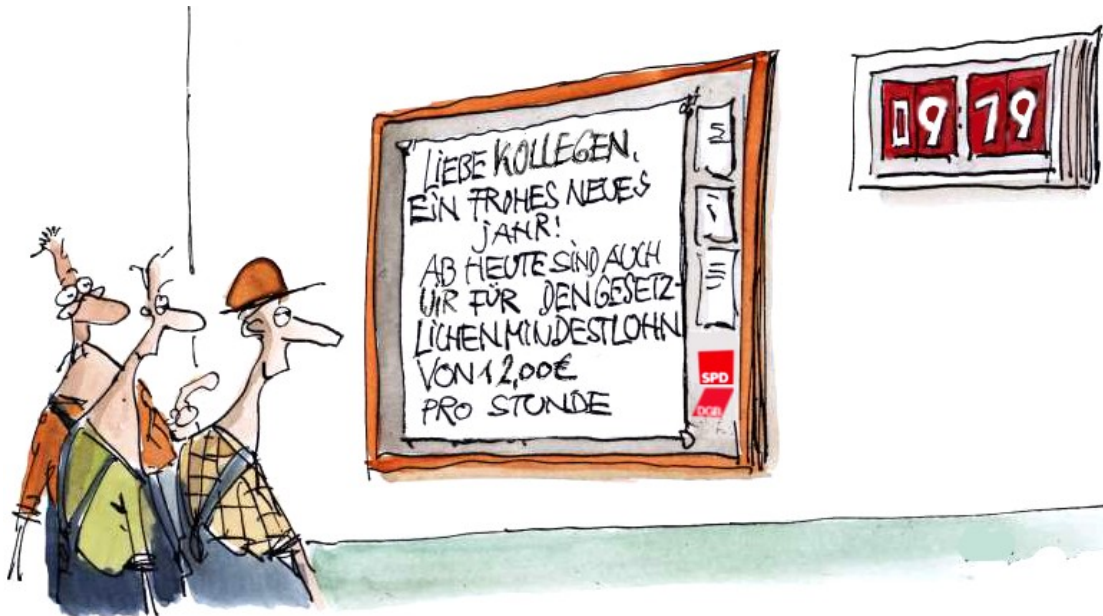 LIEBE KOLLEGEN,
EIN FROHES NEUES
JAHR!
AB HEUTE SIND AUCH
WIR FÜR DEN GESETZ-
LICHEN MINDESTLOHN
VON 12,00€
PRO STUNDE
SPD
DGB
09:79